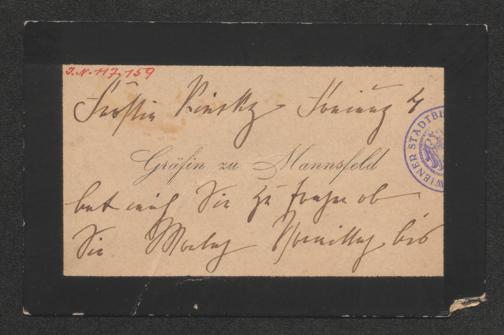 I.N. 117.159
Fürstin Kinsky Freiung 4
Gräfin zu Mannsfeld
bat mich Sie zu fragen ob
Sie Montag Vormittag bis
WIENER STADTBI